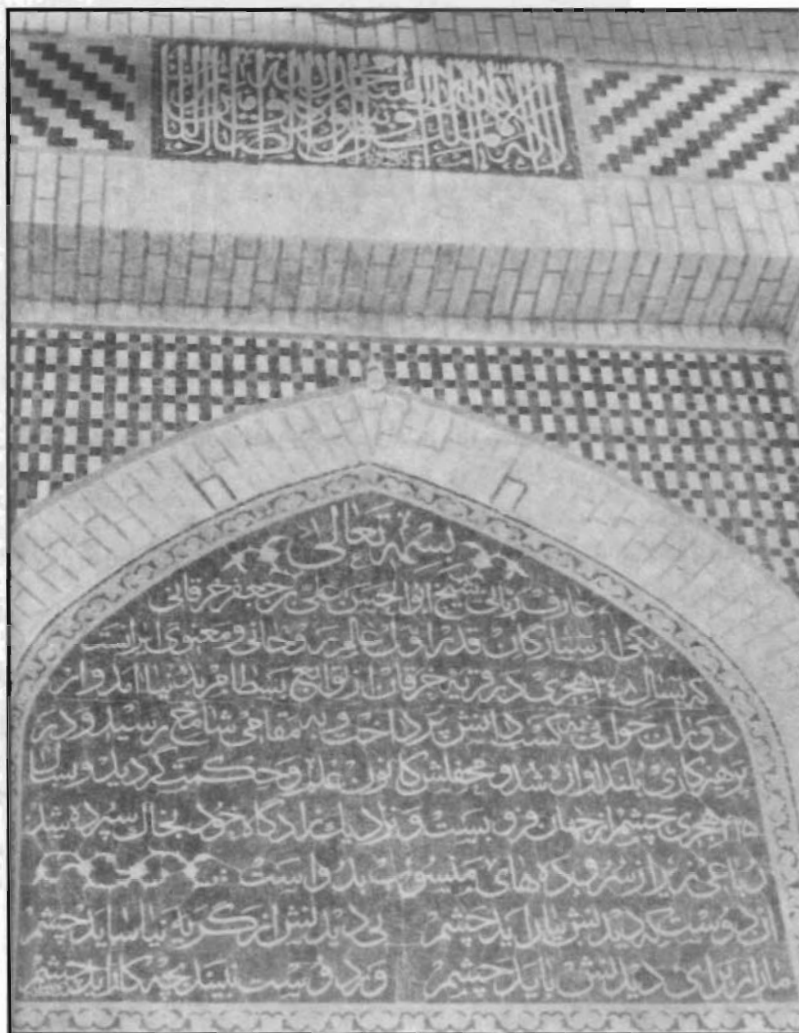 بسمه تعالی
عارف ربانی شیخ ابوالحسن علی بن جعفر خرقانی
یکی از ستارگان قدر اول عالم روحانی و معنوی ایرانست
که بسال ۳۴۸ هجری در قریه خرقان از توابع بسطام بدنیا آمد و از
دوران جوانی به کسب دانش پرداخت و به مقامی شامخ رسید و در
پرهیزکاری بلند آوازه شد و محفلش کانون علم و حکمت گردید و بسال
۴۲۵ هجری چشم از جهان فرو بست و نزدیک زادگاه خود بخاک سپرده شد
رباعی زیر از سروده های منسوب بدو است
آن دوست که دیدنش بیاراید چشم بی دیدنش از گریه نیاساید چشم
ما را ز برای دیدنش باید چشم ور دوست نبیند بچه کار آید چشم